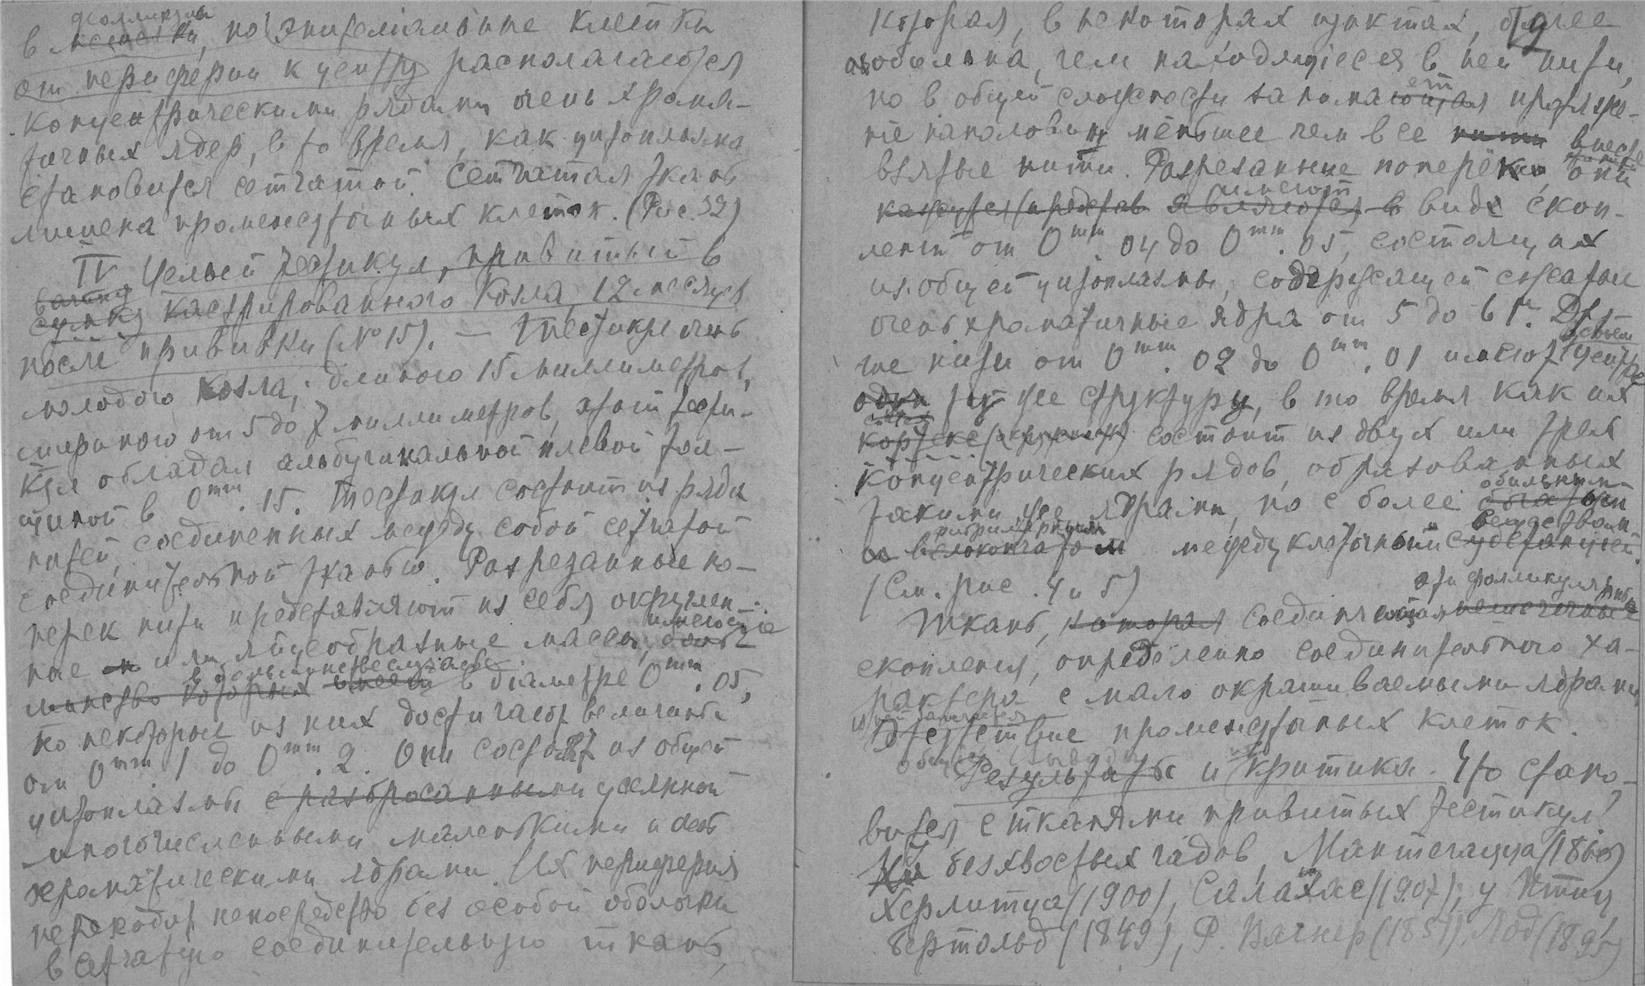 фолликулы
в , но эпителиальные клетки
от периферии к центру располагаются
концентрическими рядами очень хрома-
тичных ядер, в то время, как цитоплазма
становится сетчатой. Сетчатая ткань
лишена промежуточных клеток. (Рис. 32)
IV Целый тестикул, привитый в
сумку кастрированного козла, 12 месяцев
после прививки (№ 15). — Тестикул очень
молодого козла; длиною 15 миллиметров,
шириною от 5 до 7 миллиметров, этот тести-
кул обладал альбугинальной плевой тол-
щиной в 0mm. 15. Тестикул состоит из ряда
нитей, соединенных между собой сетчатой
соединительной тканью. Разрезанные по-
перек нити представляют из себя округлен-
ные или яйцеобразные массы, имеющие
в большинстве случаев в диаметре 0mm. 05,
но некоторые из них достигают величины
от 0mm 1 до 0mm. 2. Они состоят из общей
цитоплазмы с разбросанными усеянной
многочисленными маленькими и очень
хроматическими ядрами. Их периферия
переходит непосредство без особой оболочки
в сетчатую соединительную ткань,
которая, в некоторых пунктах, более
обильна, чем находящиеся в ней нити,
но в общей сложности занимает простран-
ие наполовину меньшее чем все вместе
взятые нити. Разрезанные поперёк они
имеют
кажутся представ являются в виде скоп-
лений от 0mm. 04 до 0mm. 05, состоящих
из общей цитоплазмы, содержащей сжатые
очень хроматичные ядра от 5 до 6 μ. Дру-
гие нити от 0mm. 02 до 0mm. 01 имеют в центре
ту же структуру, в то время как их
состоит из двух или трех
концентрических рядов, образованных
такими же ядрами, но с более обильным
межуклеточным веществом.
(См. рис. 4 и 5)
Ткань, которая соединяющая эти фолликулярные
скопления, определенно соединительного ха-
рактера с мало окрашиваемыми ядрами
Отсутствие промежуточных клеток.
Общие выводы
Результаты и критика. Что стано-
вится с тканями привитых тестикул?
У безхвостых гадов, Мантегацца (1865)
Херлитца (1900), Сала (1907); у птиц
Бертольд (1849), Р. Вагнер (1851). Лод (1895)